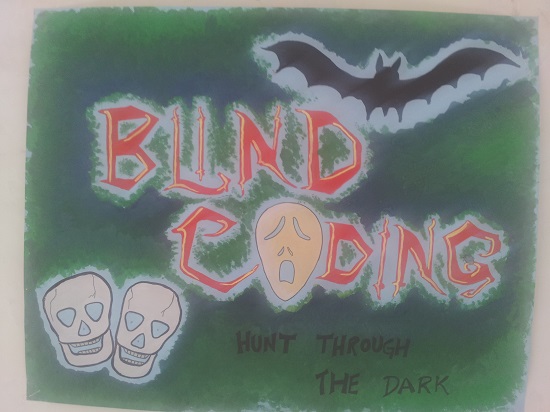 BLIND
CODING
HUNT THROUGH
THE DARK